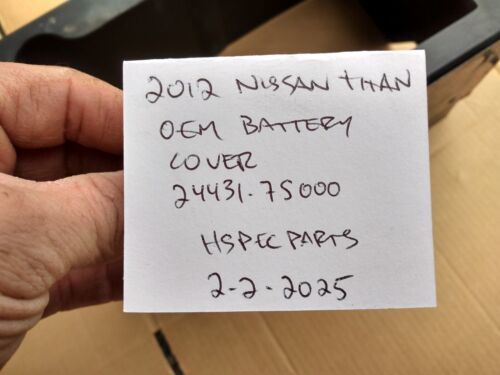 2012 NISSAN tHAN
OEM BATTERY
COVER
24431-7S000
HSPEC PARTS
2-2-2025